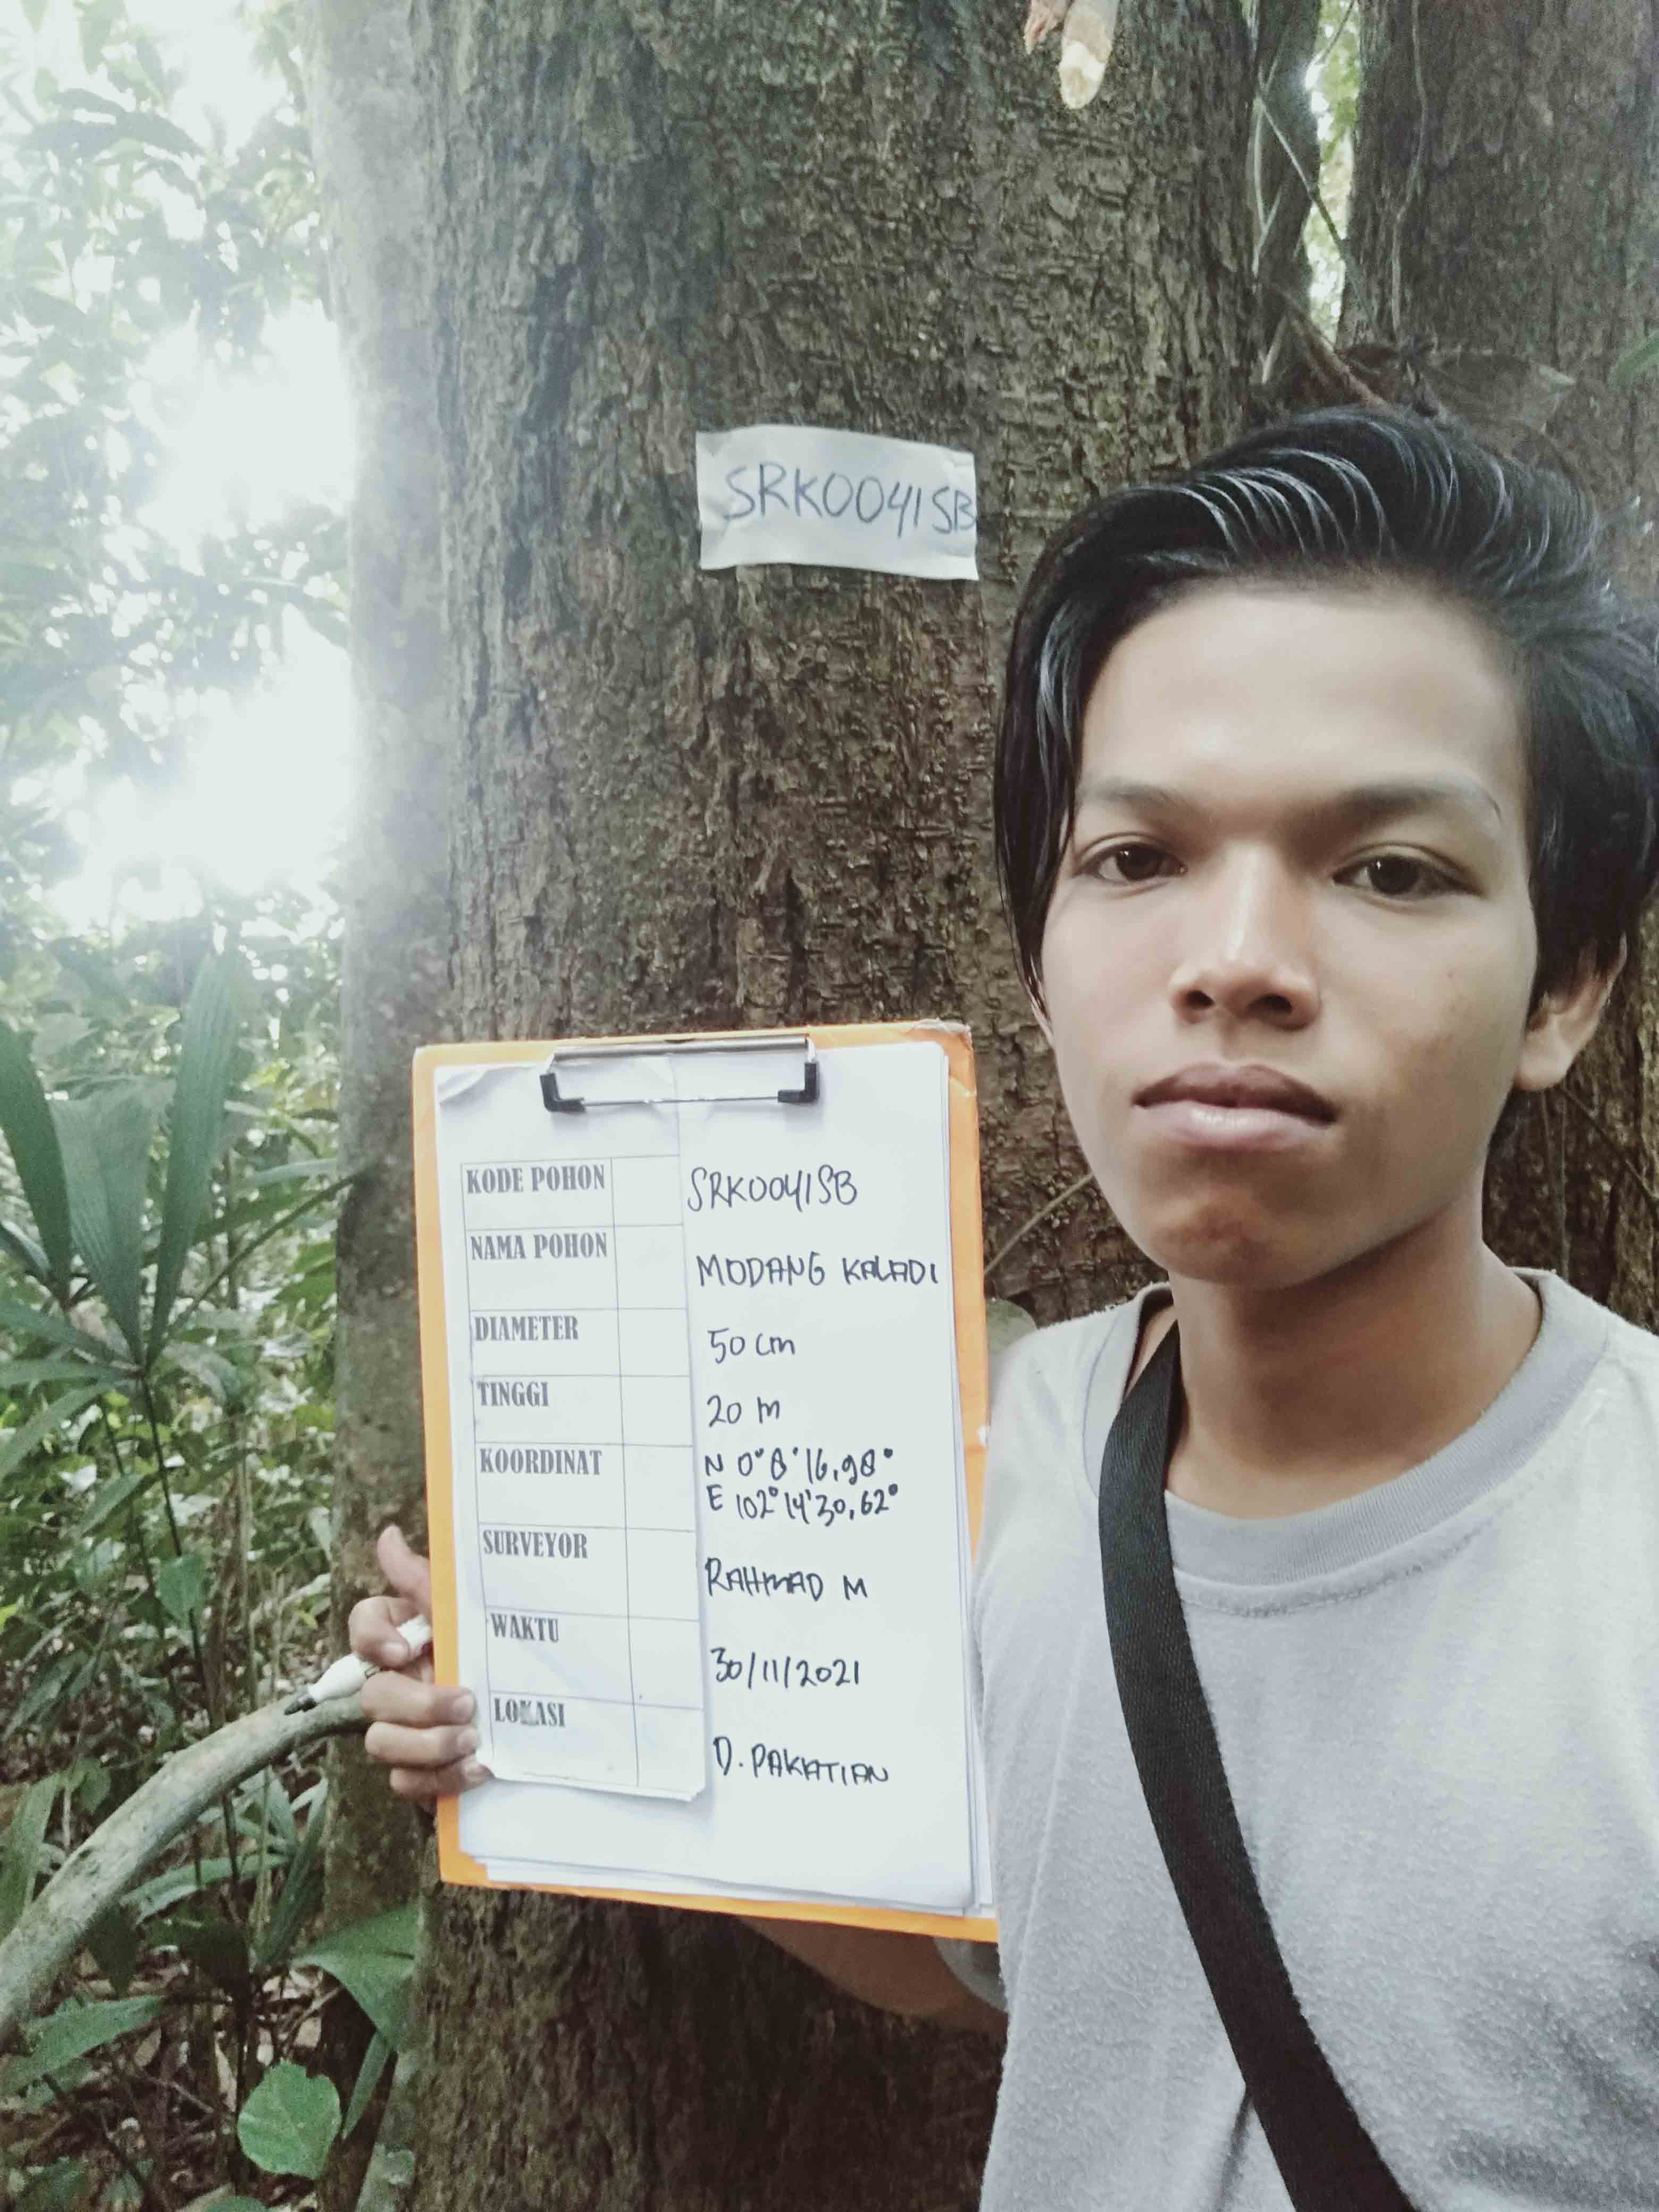 SRK0041SB
KODE POHON SRK0041SB
NAMA POHON MODANG KALADI
DIAMETER 50 cm
TINGGI 20 m
KOORDINAT N 0°8'16,98°
E 102°14'30,62°
SURVEYOR RAHMAD M
WAKTU 30/11/2021
LOKASI D. PAKATIAN